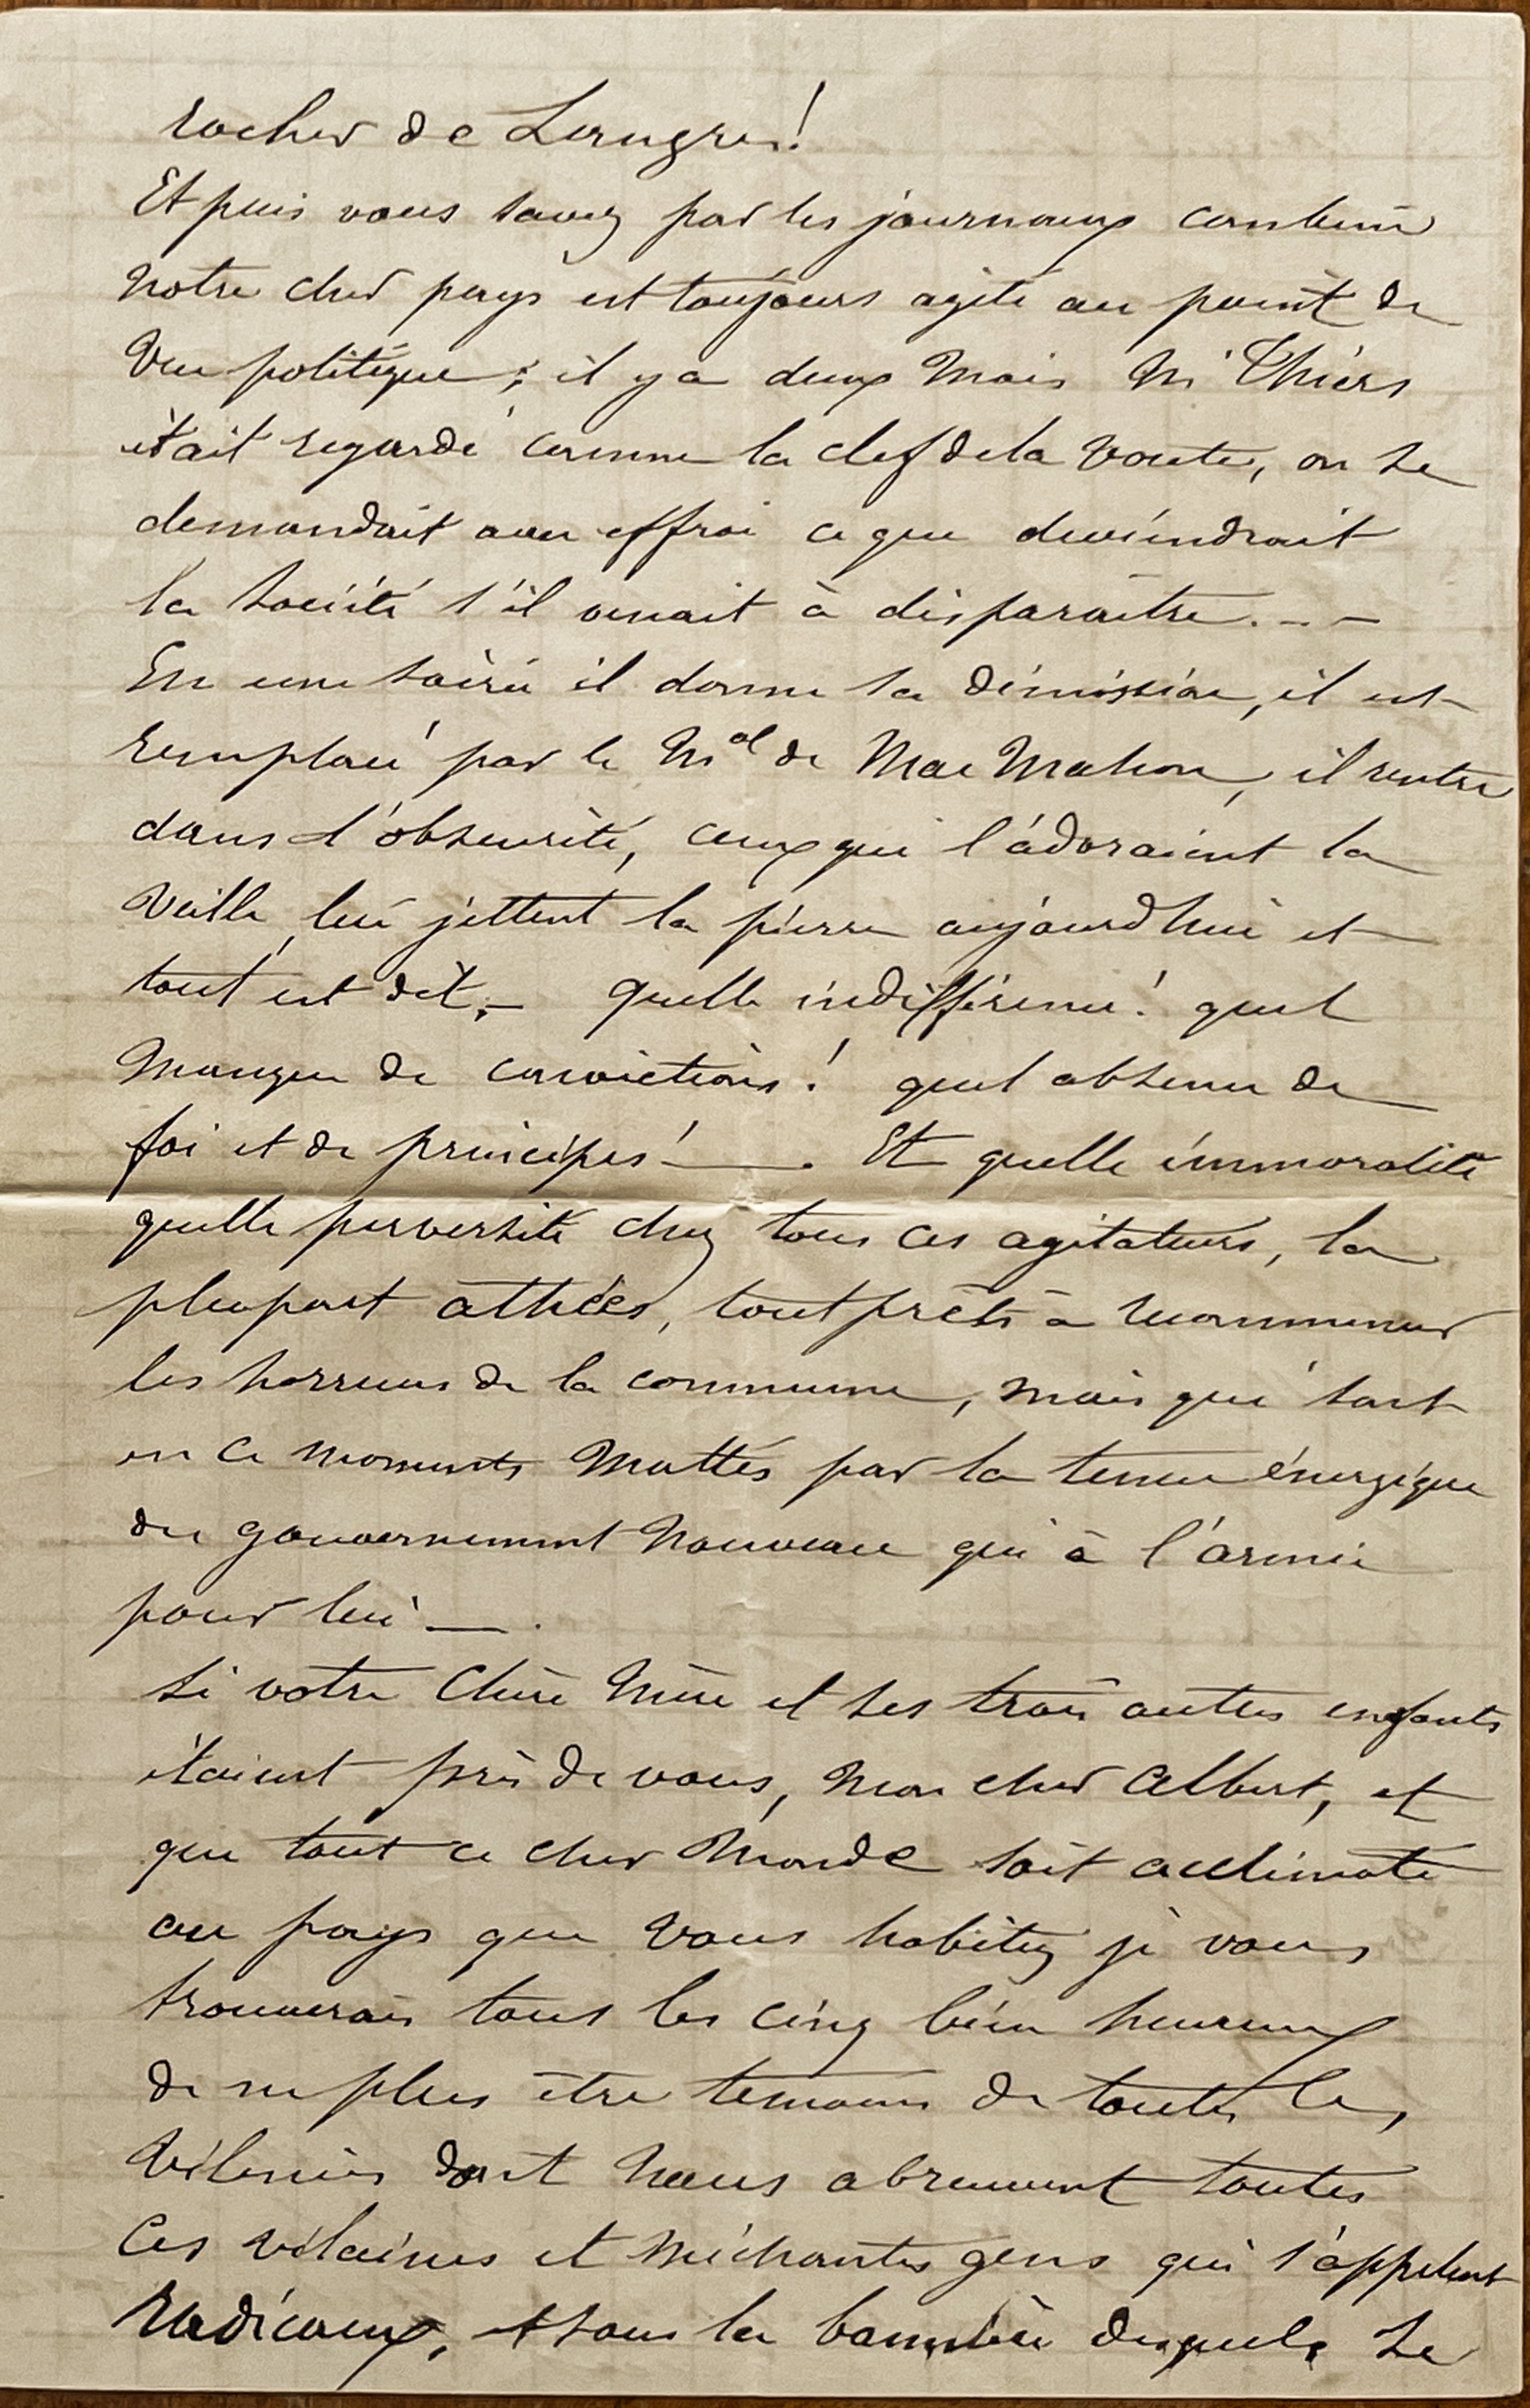 rocher de Langres!
Et puis vous savez par les journaux combien
notre cher pays est toujours agité au point de
vue politique; il y a deux mois Mr Thiers
était regardé comme la clef de la voute, on se
demandait avec effroi ce que deviendrait
la société s'il venait à disparaître. - -
En une soirée il donne sa démission, il est
remplacé par le Mal de Mac Mahon, il rentre
dans l'obscurité, ceux qui l'adoraient la
veille, lui jettent la pierre aujourd'hui et
tout est dit. — quelle indifférence! quel
manque de convictions! quel absence de
foi et de principes! —. Et quelle immoralité
quelle perversité chez tous ces agitateurs, la
plupart athées, tout prêts à recommencer
les horreurs de la commune, mais qui sont
en ce moments mattés par la tenue énergique
du gouvernement nouveau qui à l'armée
pour lui —.
Si votre chère mère et ses trois autres enfants
étaient près de vous, mon cher Albert, et
que tout ce cher monde soit acclimaté
au pays que vous habitez je vous
trouverais tous les cinq bien heureux
de ne plus être temoins de toutes les
vilenies dont nous abreuvent toutes
ces vilaines et méchantes gens qui s'appelent
radicaux, et sous la bannière desquels se